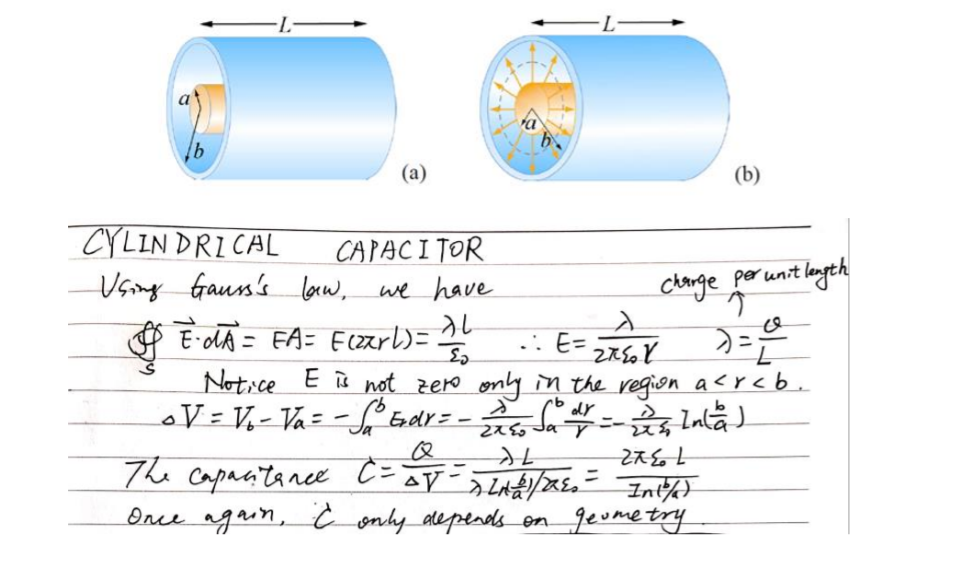 L L
a b (a) a b (b)
CYLINDRICAL CAPACITOR
Using Gauss's law, we have charge per unit length
∯_S E⃗·dA⃗ = EA = E(2πrl) = λl/ε₀ ∴ E = λ/2πε₀r λ = Q/L
Notice E is not zero only in the region a<r<b.
△V = V_b - V_a = -∫_a^b E_r dr = - λ/2πε₀ ∫_a^b dr/r = - λ/2πε₀ ln(b/a)
The capacitance C = Q/△V = λL/λ ln(b/a)/2πε₀ = 2πε₀L/ln(b/a)
Once again, C only depends on geometry.